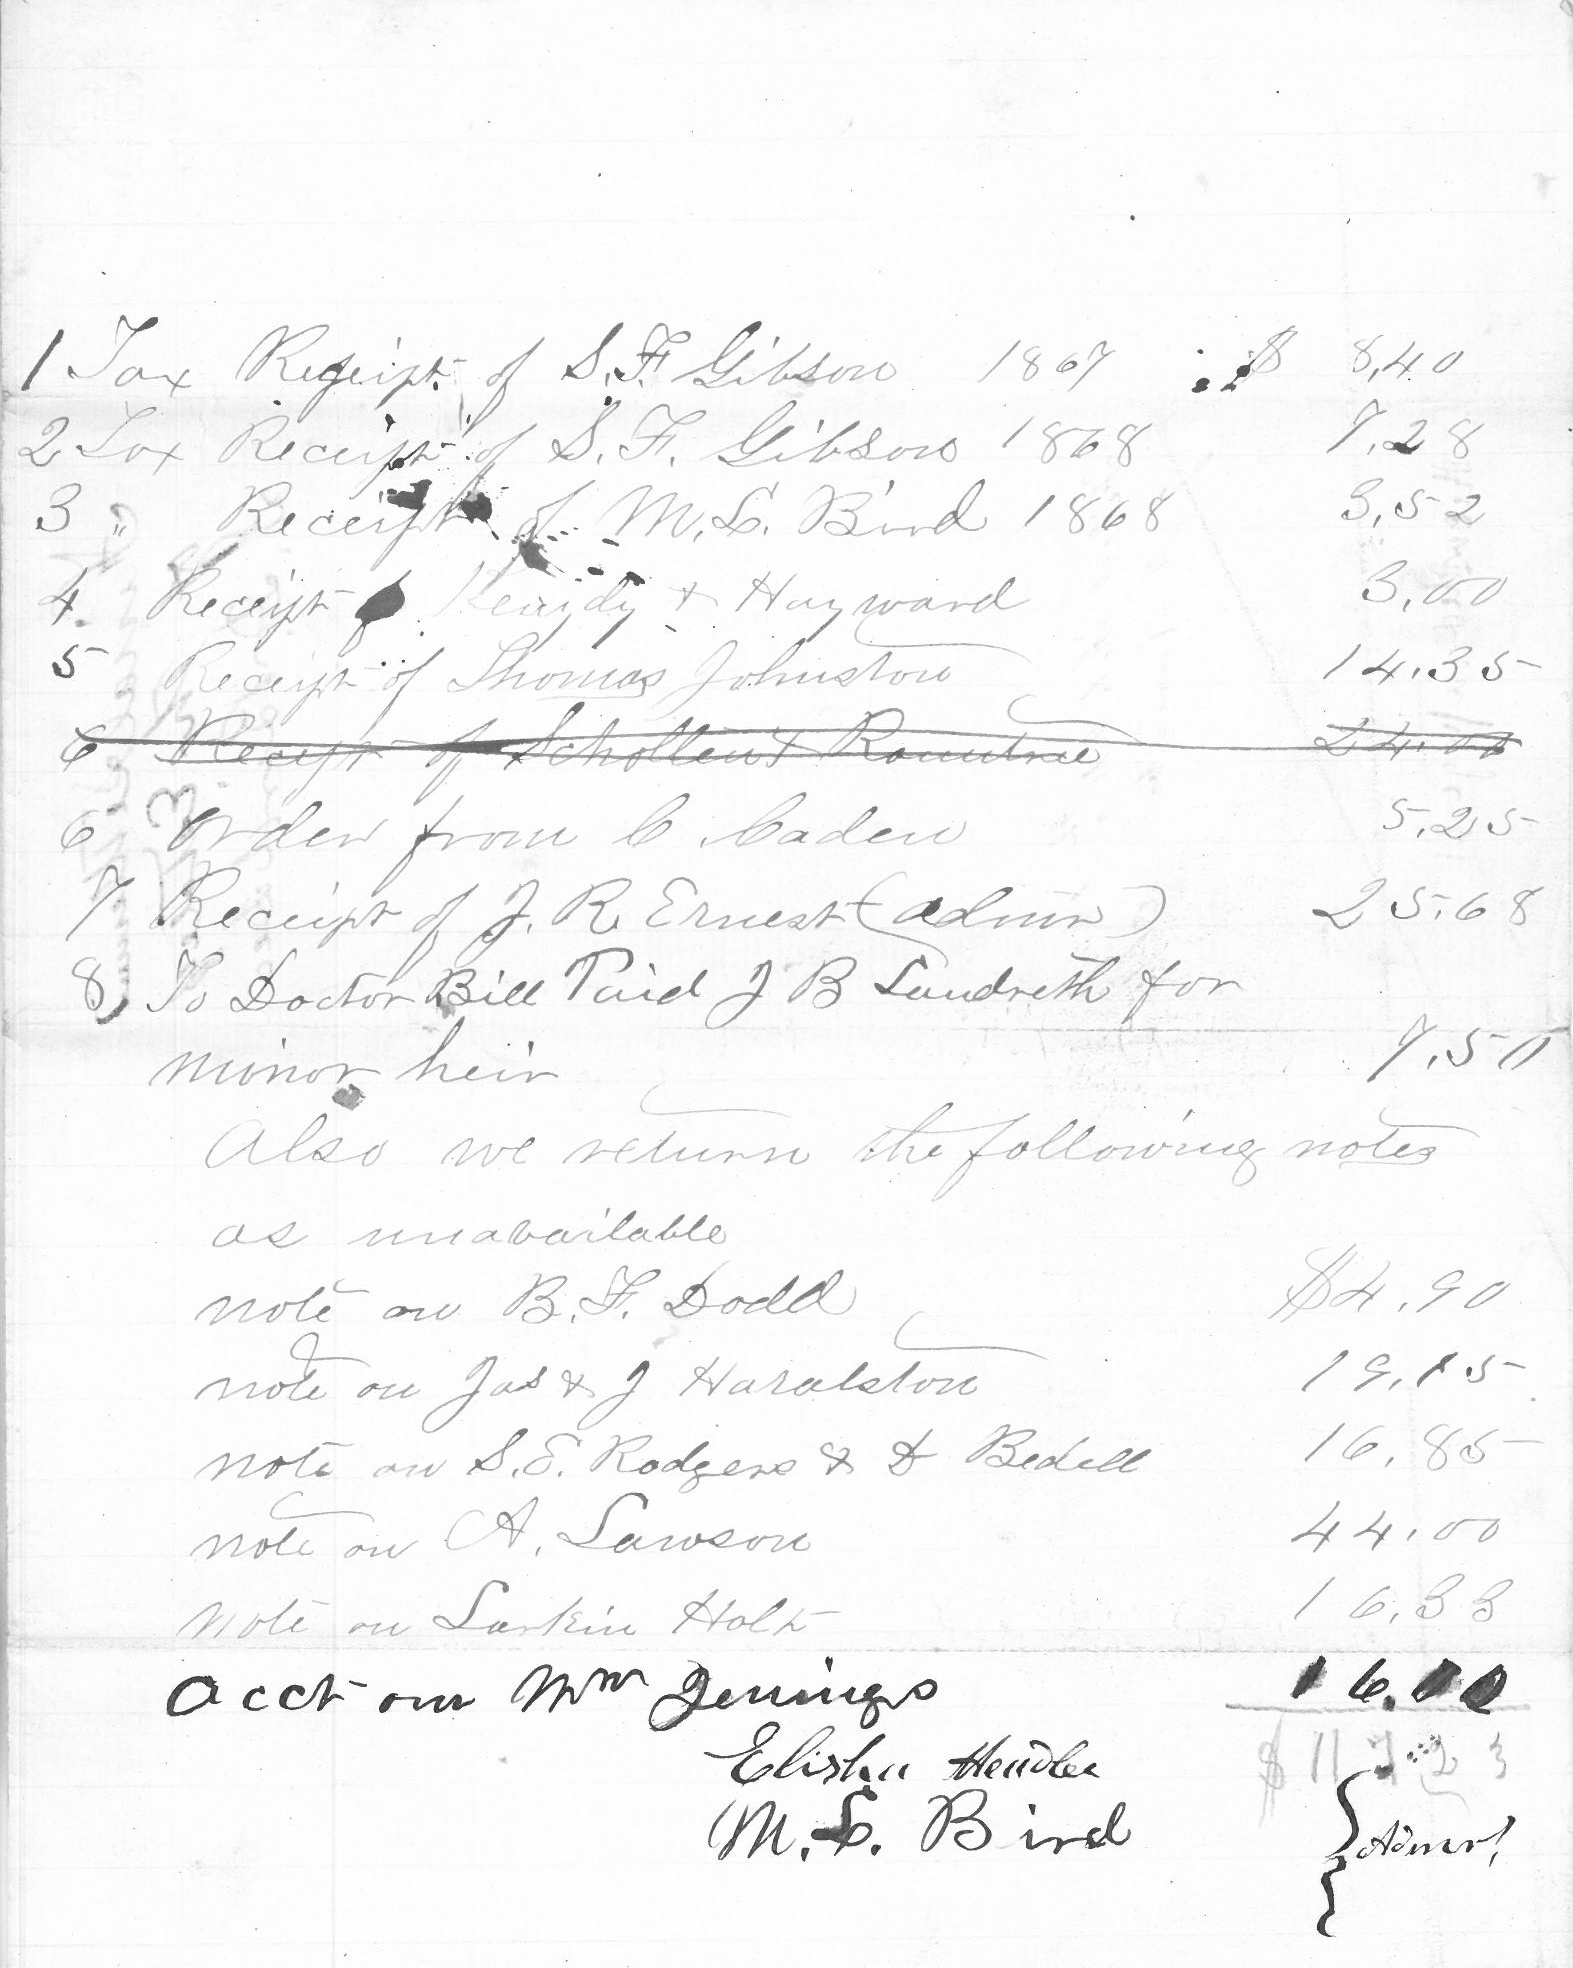 1 Tax Receipt of S. F. Gibson 1867 $ 8,40
2 Tax Receipt of S. F. Gibson 1868 7,28
3 " Receipt of M. L. Bird 1868 3,52
4. Receipt & Hayward 3,00
5 Receipt of Thomas Johnston 14.35
6 Receipt of Scholten & Rountree 24.00
6 Order from C. Caden 5.25
7 Receipt of J. R. Ernest (admr) 25.68
8, To Doctor Bill Paid J B Landreth for
minor heir 7.50
Also we return the following notes
as unavailable
note on B. F. Dodd $4.90
note on Jas & J Haralston 19.15
note on S. E. Rodgers & D Bedell 16.85
note on A. Lawson 44.00
note on Larkin Holt 16.33
acct on Wm Jenings 16.00
$ 117 23
Elisha
M. L. Bird } Admrs